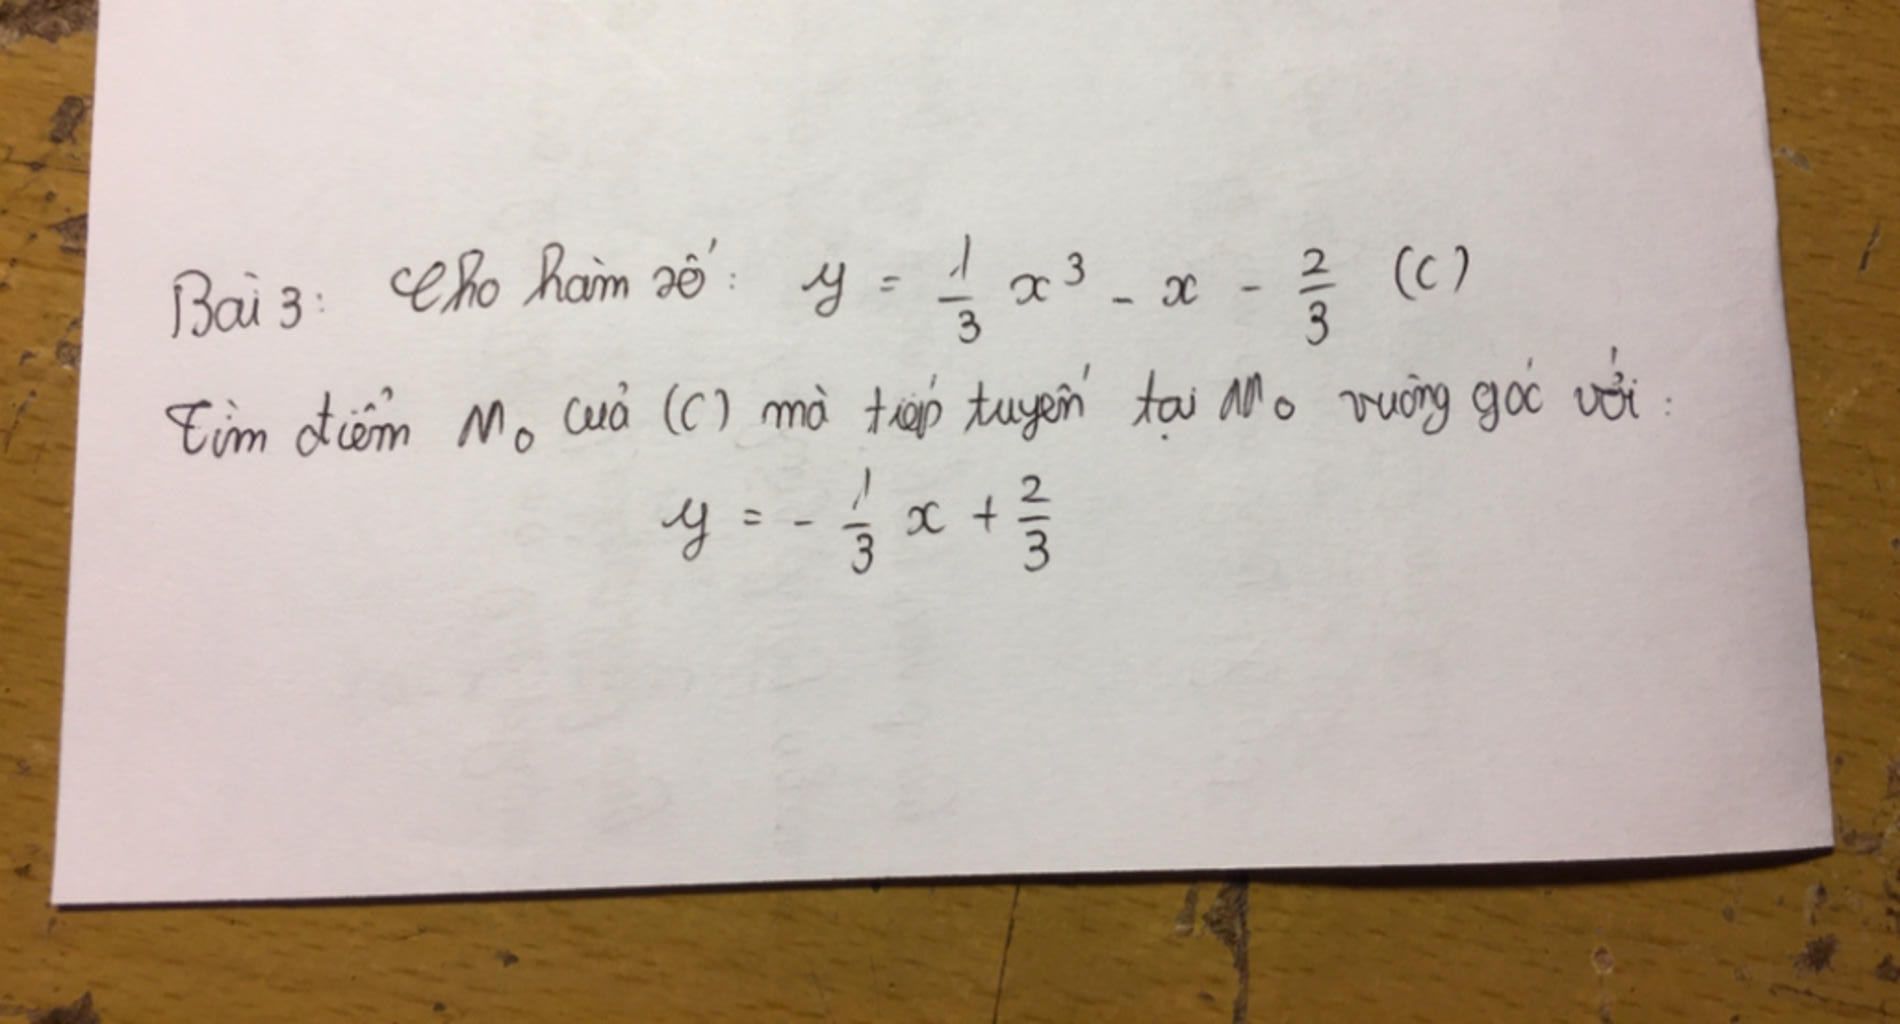 Bài 3: Cho hàm số: y = 1/3 x³ - x - 2/3 (C)
Tìm điểm M₀ cuả (C) mà tiếp tuyến tại M₀ vuông góc với:
y = - 1/3 x + 2/3